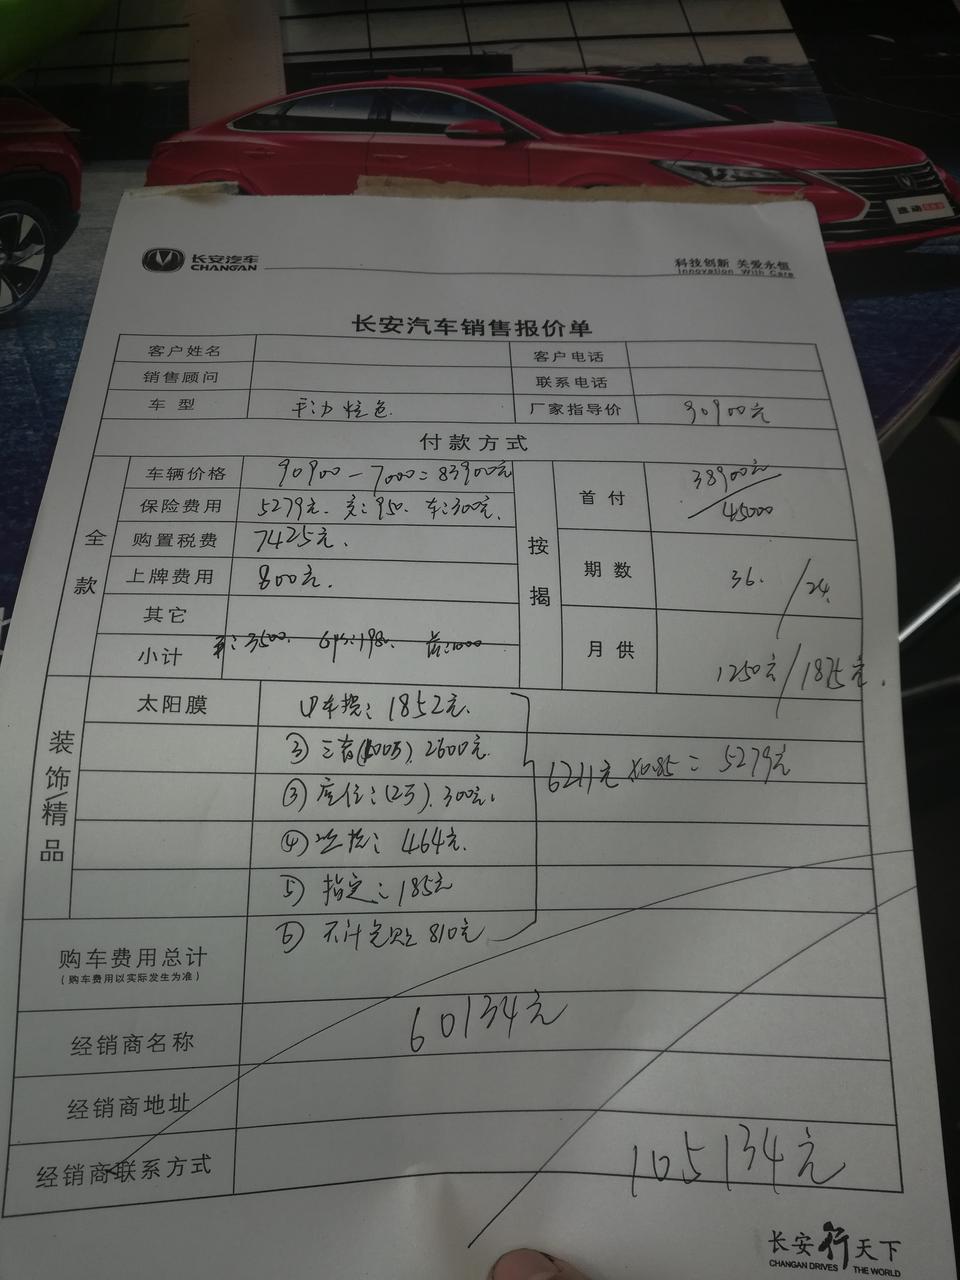 长安汽车
CHANGAN
科技创新 关爱永恒
Innovation With Care
长安汽车销售报价单
客户姓名 客户电话
销售顾问 联系电话
车型 炫色 厂家指导价 90900元
付款方式
全款
车辆价格 90900－7000＝83900元
保险费用 5279元. 交:950. 车:300元.
购置税费 7425元.
上牌费用 800元.
其它
小计 3500. 1000
按揭
首付 38900元/45000
期数 36./24.
月供 1250元/1875元.
装饰/精品
太阳膜 ①车损:1852元.
②三者(100万).2600元.
③座位:(2万).300元.
④ 464元.
⑤指定:185元
⑥不计免赔 810元
6211元×0.85＝5279元
购车费用总计
(购车费用以实际发生为准)
经销商名称 60134元
经销商地址
经销商联系方式 105134元
长安行天下
CHANGAN DRIVES THE WORLD